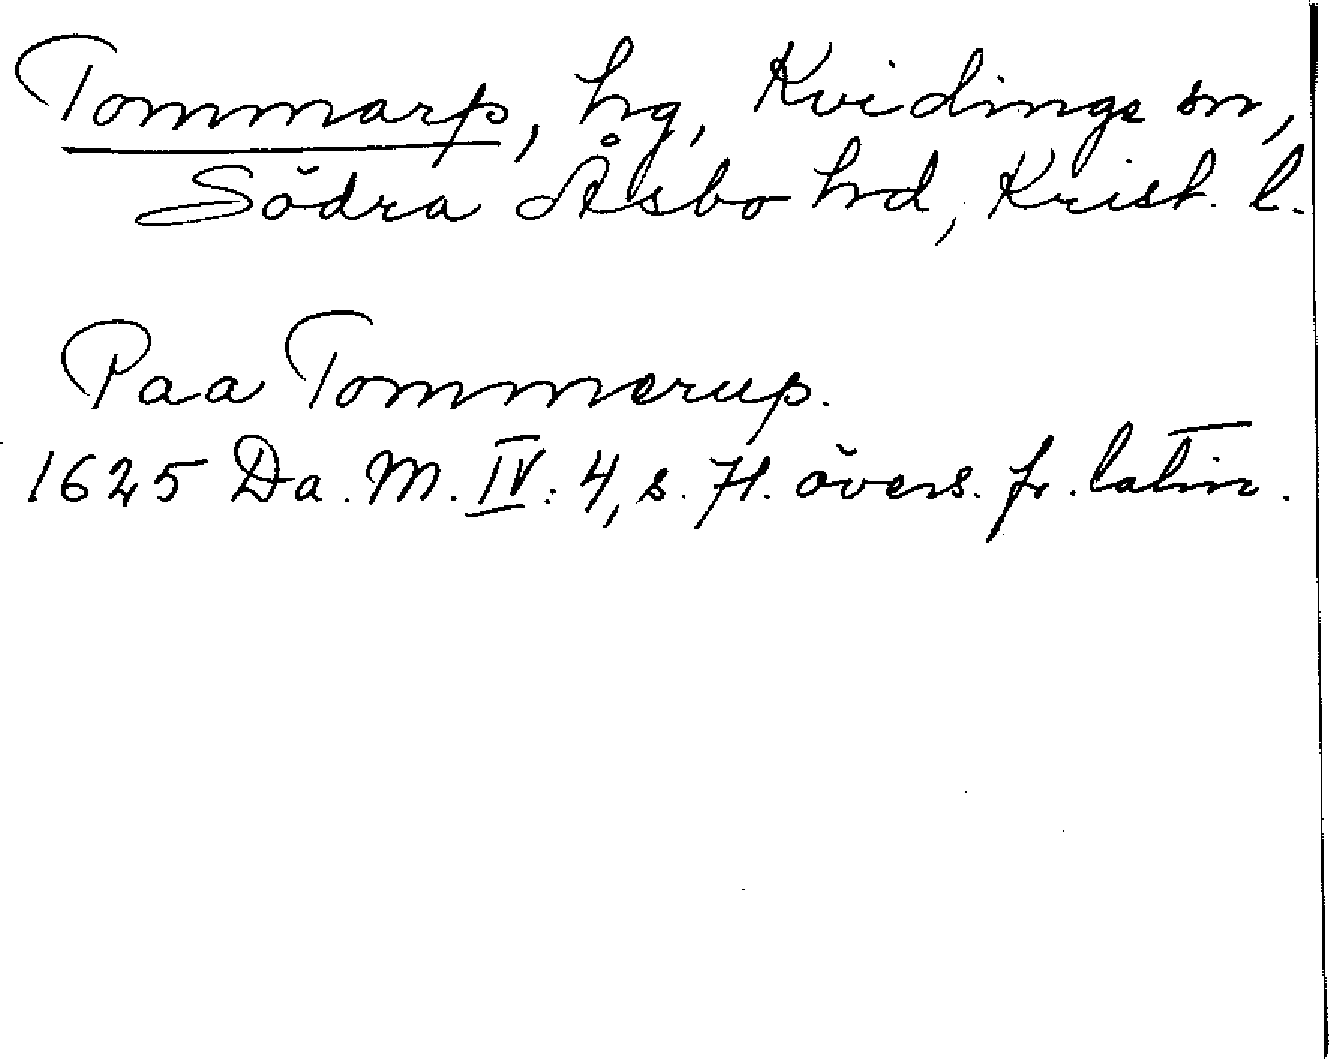 Tommarp, hg, Kvidinge sn,
Södra Åsbo hd, Krist. l.
Paa Tommerup.
1625 Da. M. IV: 4, s. 71. övers. fr. latin.